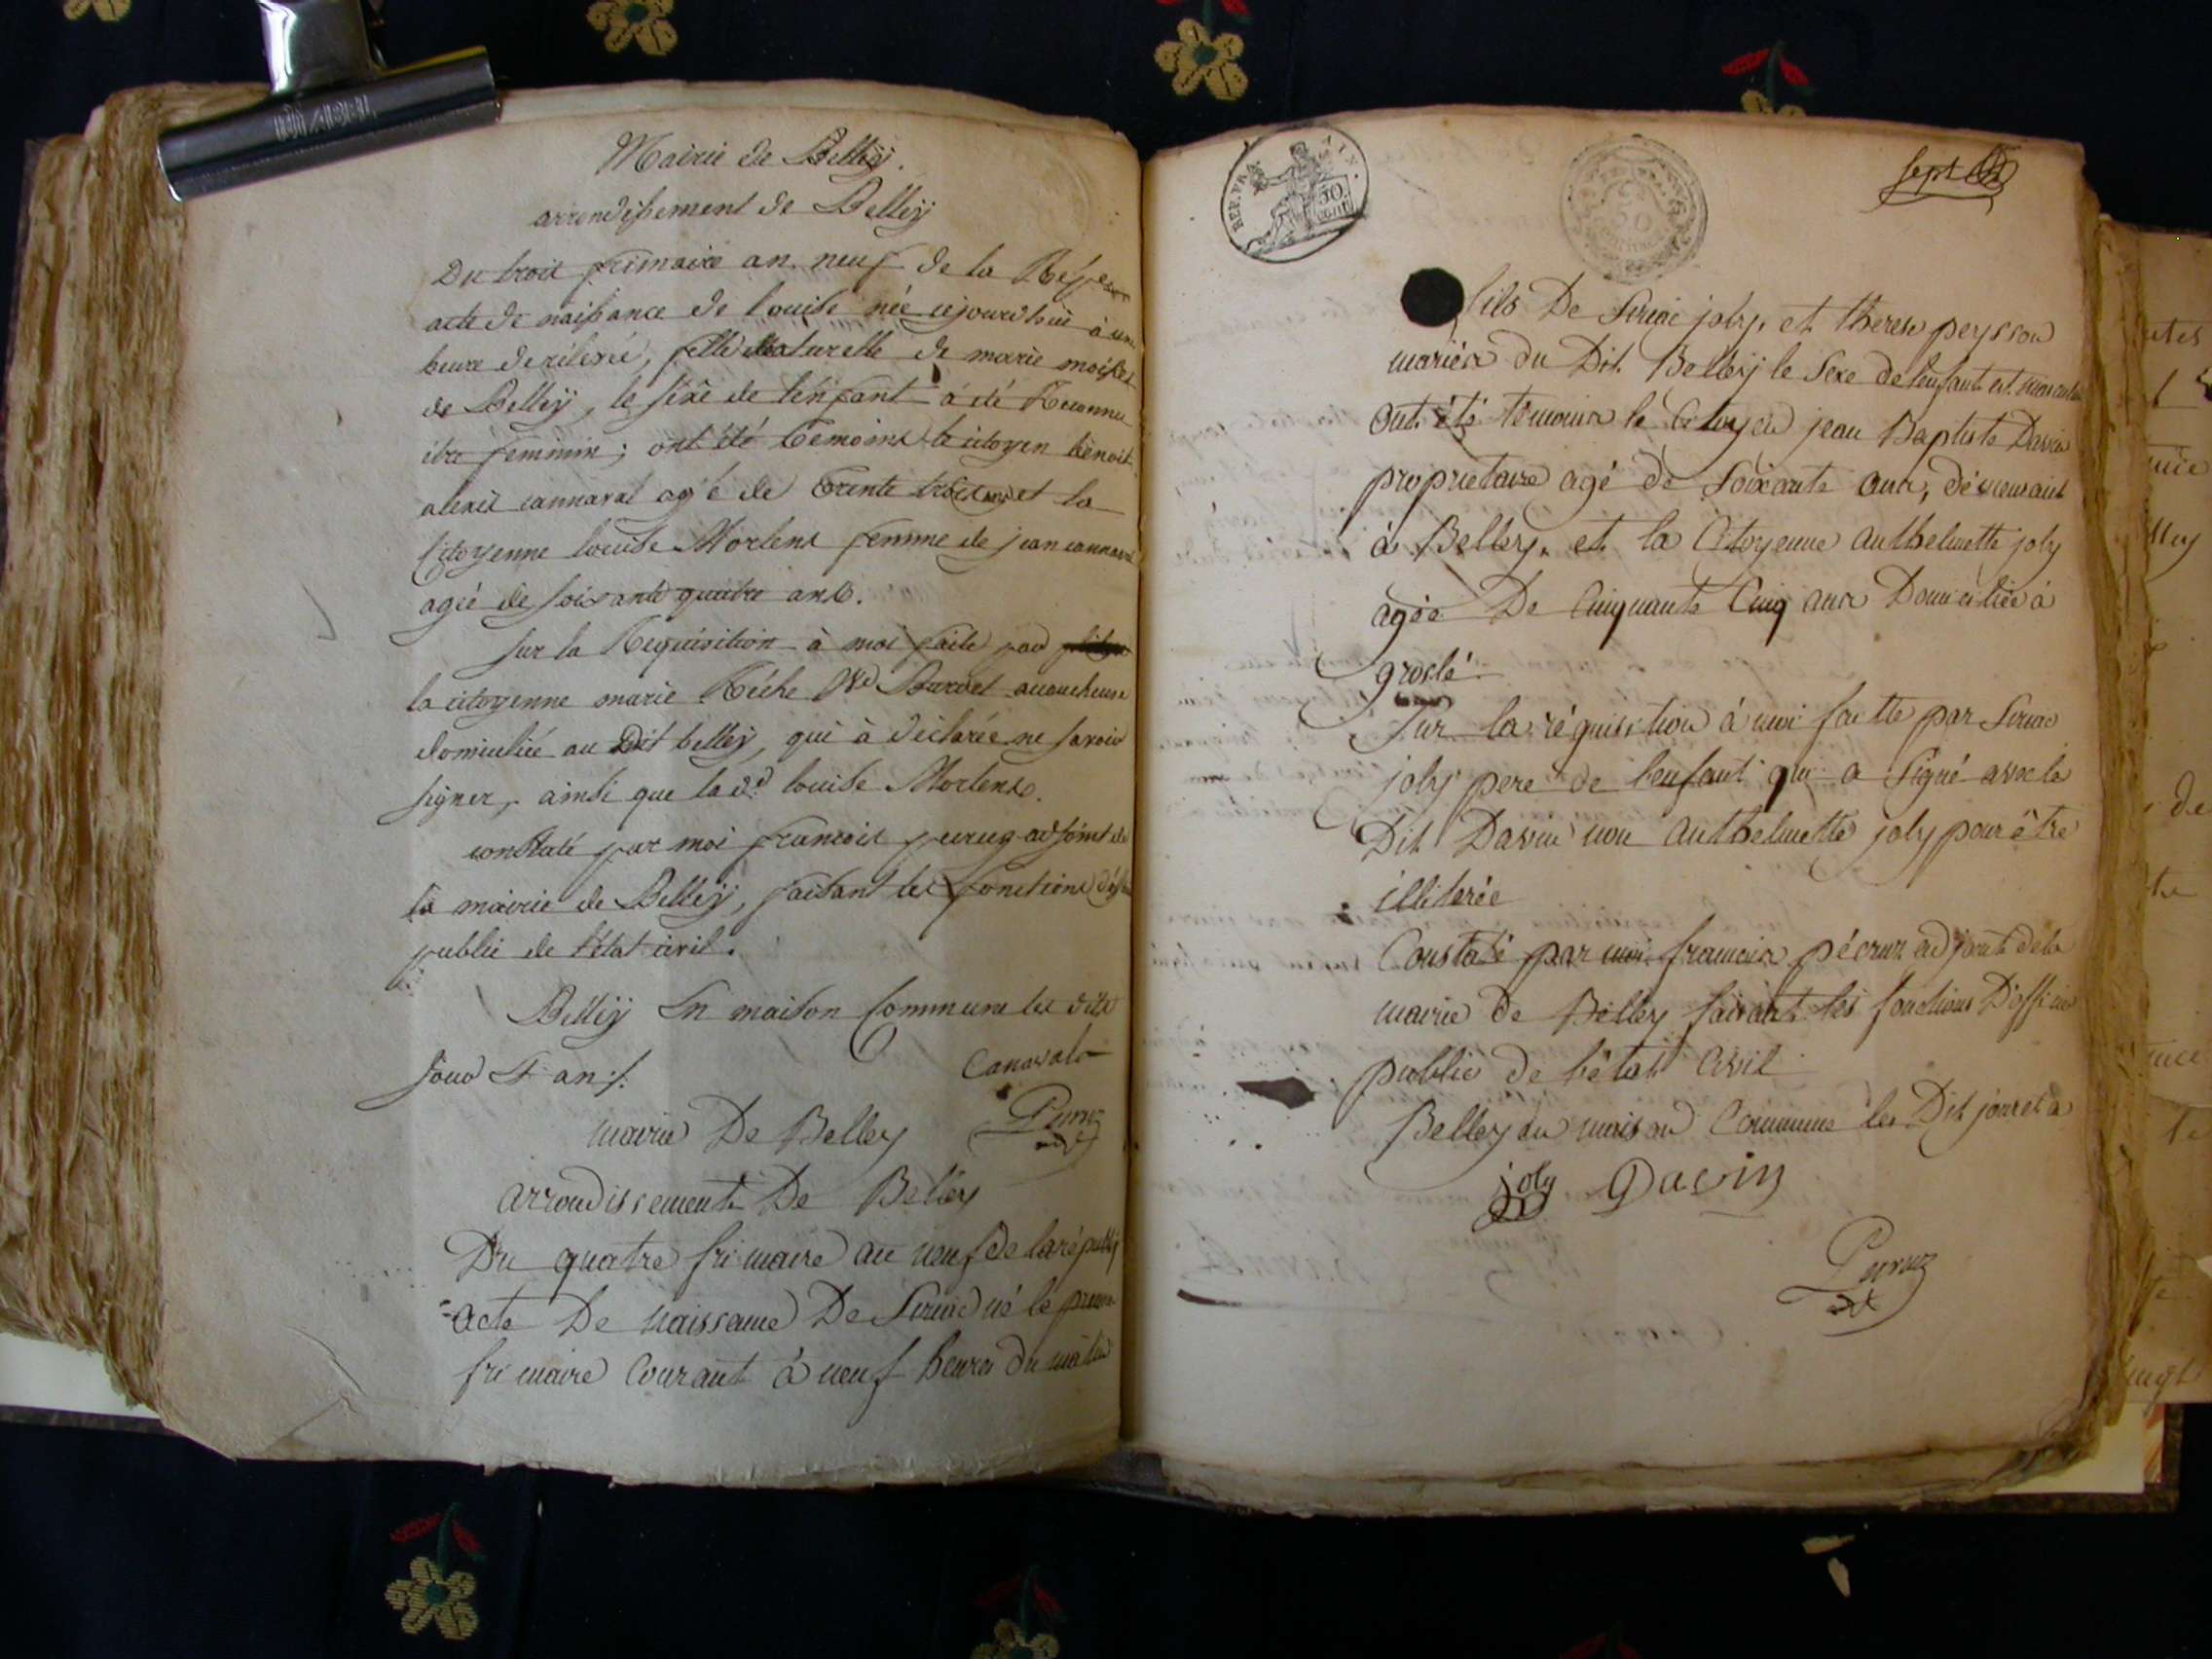 Mairie de Belleÿ.
arrondissement de Belleÿ
Du trois frimaire an neuf de la
acte de naissance de Louise née cejourd'hui à une
heure de relevée, fille naturelle de marie
de Belleÿ, le sexe de l'enfant à été Reconnu
être feminin; ont été temoins le citoyen benoit
alexis cannaval agé de Trente trois ans et la
Citoyenne louise Mortens femme de jean cannaval
agée de soixante quatre ans.
sur la Requisition à moi faite par
la citoyenne marie accoucheuse
domiciliée au Dit belleÿ, qui à déclarée ne savoir
signer, ainsi que lad.e louise Mortens.
constaté par moi francois peyruz adjoint de
la mairie de Belleÿ, faisant les fonctions
public de l'état civil.
Belleÿ En maison Commune les dits
jour & an /.
Canavalo
mairie De Belley
Peyruz
arrondissement De Belley
Du quatre frimaire an neuf de la répub
acte De naissance De Siriac né le premier
frimaire Courant à neuf heures du matin
REP. FRA.
50
CENT
sept
fils De Siriac joly, et therese peysson
mariés du Dit Belley le Sexe de l'enfant est masculin
ont été témoins le Citoyen jean Baptiste Davin
proprietaire agé de Soixante ans, démeurant
à Belley, et la Citoyenne anthelmette joly
agée De Cinquante Cinq ans Domiciliée à
groslé.
Sur la réquisition à moi faitte par Siriac
joly pere de l'enfant qui a Signé avec le
Dit Davin non anthelmette joly pour être
illiterée
Constaté par moi francois péyruz adjoint de la
mairie de Belley faisant les fonctions D'officier
public de l'état Civil
Belley en maison Commune les Dit jour et a
joly Davin
Peyruz